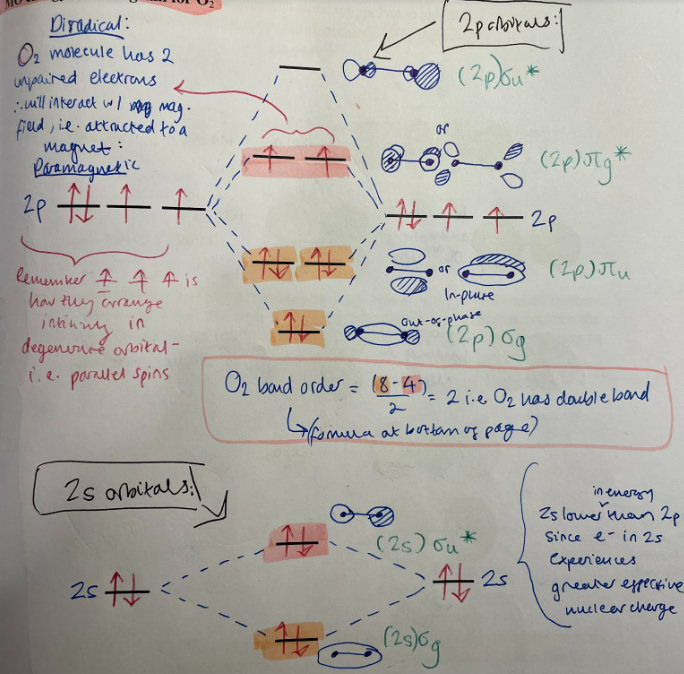 for O₂
Diradical:
O₂ molecule has 2
unpaired electrons
∴ will interact w/ mag.
field, i.e. attracted to a
magnet:
Paramagnetic
2p orbitals:
(2p)σu*
or
(2p)πg*
2p
2p
or
(2p)πu
In-phase
out-of-phase
(2p)σg
Remember ↑ ↑ ↑ is
how they arrange
in
degenerate orbital-
i.e. parallel spins
O₂ bond order = (8-4)/2 = 2 i.e O₂ has double bond
↳ (formula at bottom of page)
2s orbitals:
(2s)σu*
2s
2s
(2s)σg
in energy
2s lower than 2p
since e⁻ in 2s
experiences
greater effective
nuclear charge